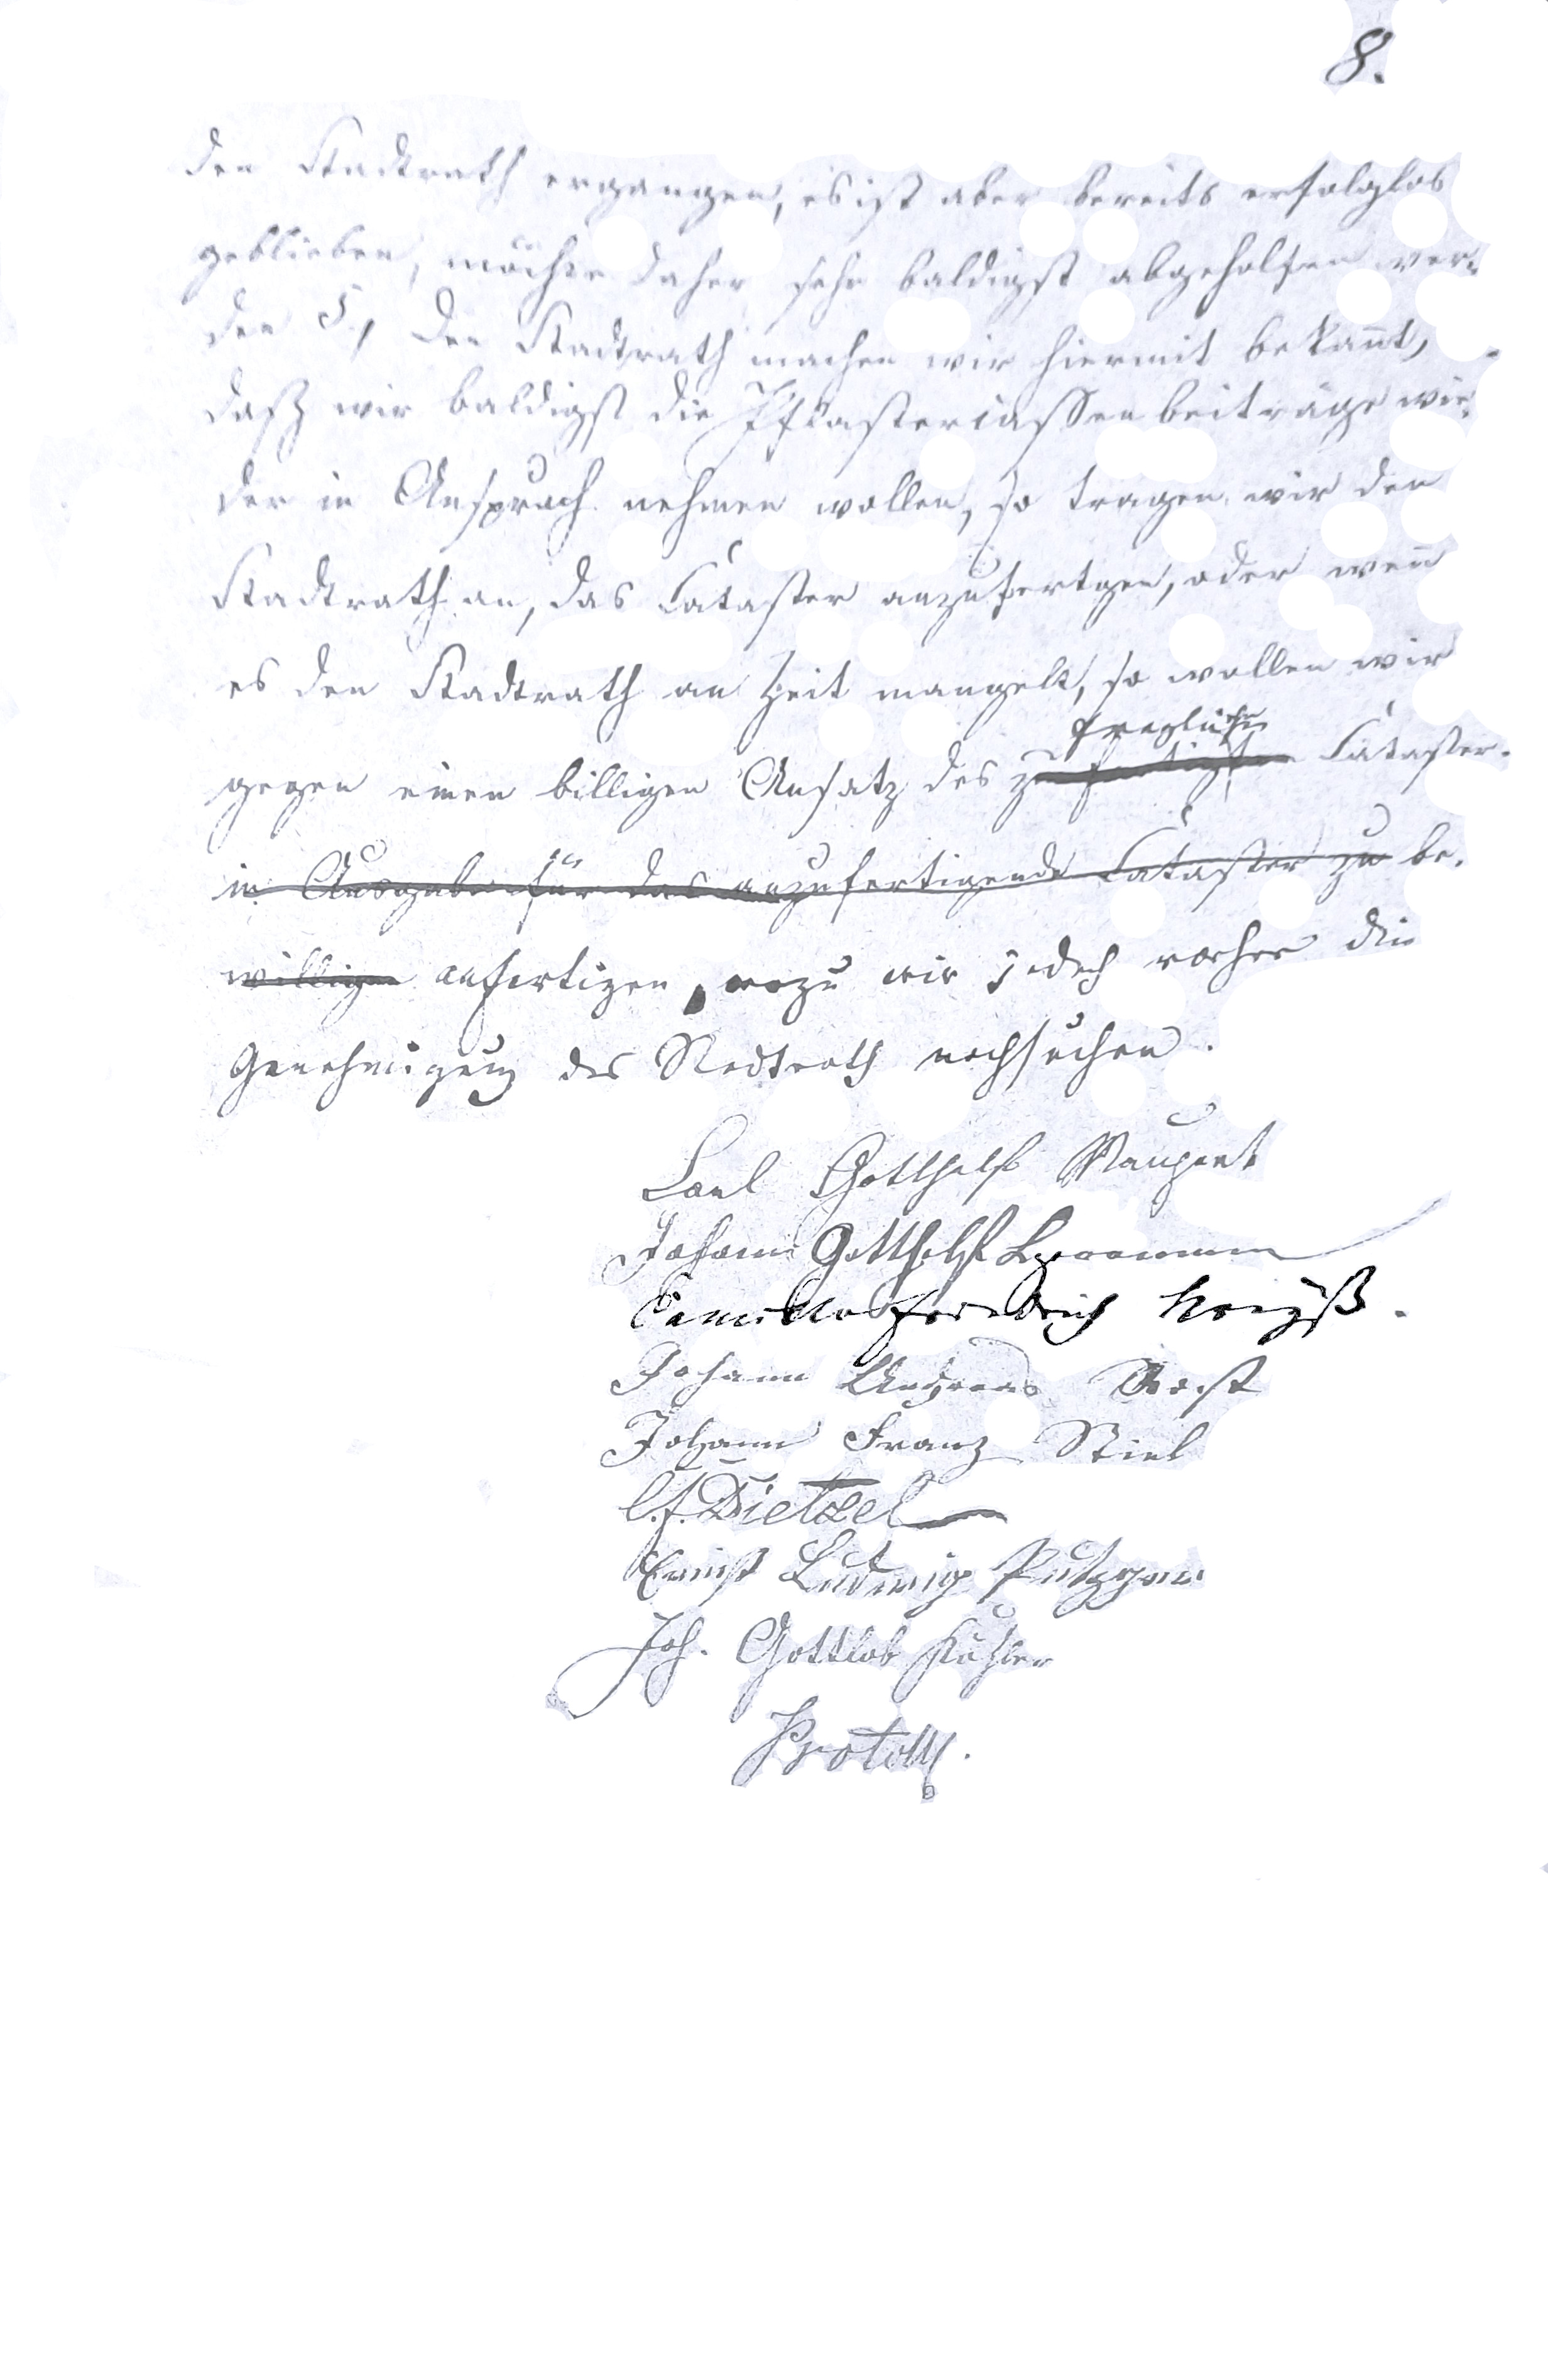 8.
den Stadtrath ergangen, es ist aber bereits erfolglos
geblieben, möchte daher sehr baldigst abgeholfen wer-
den 5, Den Stadtrath machen wir hiermit bekannt,
daß wir baldigst die Pflastercassenbeiträge wie-
der in Anspruch nehmen wollen, so tragen wir den
Stadtrath an, das Cataster anzufertgen, oder wenn
es den Stadtrath an Zeit mangelt, so wollen wir
fragliche
gegen einen billigen Ansatz des Cataster
in Ausgabe für das anzufertigende Cataster zu be-
willigen anfertigen, wozu wir jedoch vorher die
Genehmigung des Stadtrath nachsuchen.
Carl Gotthelf
Johann Gotthelf
Friedrich
Johann Andreas
Johann Franz Stiel
C. F. Dietzel
Ernst Ludwig Putzger
Joh. Gottlob Köhler
Protoll.